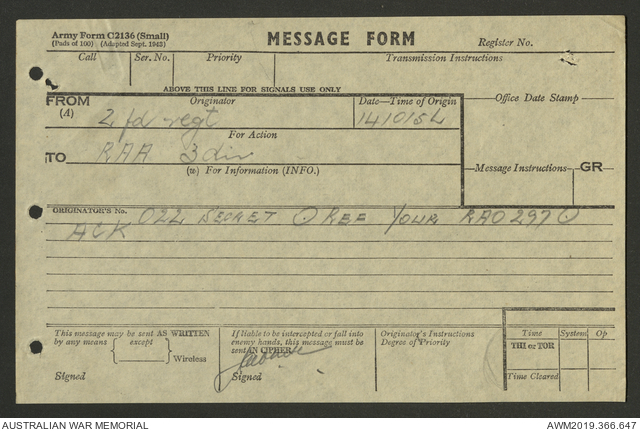 Army Form C2136 (Small)
(Pads of 100) (Adapted Sept. 1943)
MESSAGE FORM
Register No.
Call
Ser. No.
Priority
Transmission Instructions
ABOVE THIS LINE FOR SIGNALS USE ONLY
FROM
(A)
Originator
2 fd regt
Date—Time of Origin
141015L
Office Date Stamp
For Action
TO
RAA 3 div
(w) For Information (INFO.)
Message Instructions
GR
ORIGINATOR'S No.
O22 SECRET ⊙ REF YOUR RAO297 ⊙
ACK
This message may be sent AS WRITTEN
by any means except
Wireless
Signed
If liable to be intercepted or fall into
enemy hands, this message must be
sent IN CIPHER.
Signed
Originator's Instructions
Degree of Priority
Time
System
Op
THI or TOR
Time Cleared
AUSTRALIAN WAR MEMORIAL
AWM2019.366.647